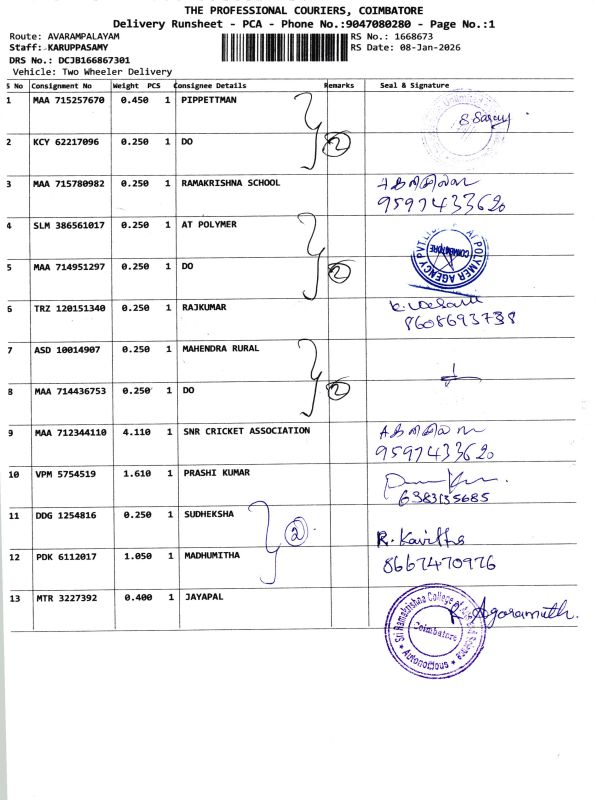 THE PROFESSIONAL COURIERS, COIMBATORE
Delivery Runsheet - PCA - Phone No.:9047080280 - Page No.:1
Route: AVARAMPALAYAM RS No.: 1668673
Staff: KARUPPASAMY RS Date: 08-Jan-2026
DRS No.: DCJB166867301
Vehicle: Two Wheeler Delivery
S No Consignment No Weight PCS Consignee Details Remarks Seal & Signature
1 MAA 715257670 0.450 1 PIPPETTMAN
2 KCY 62217096 0.250 1 DO 2
3 MAA 715780982 0.250 1 RAMAKRISHNA SCHOOL
9597433620
4 SLM 386561017 0.250 1 AT POLYMER
AT POLYMER AGENCY PVT LTD COIMBATORE
5 MAA 714951297 0.250 1 DO 2
6 TRZ 120151340 0.250 1 RAJKUMAR
8608693738
7 ASD 10014907 0.250 1 MAHENDRA RURAL
8 MAA 714436753 0.250 1 DO 2
9 MAA 712344110 4.110 1 SNR CRICKET ASSOCIATION
9597433620
10 VPM 5754519 1.610 1 PRASHI KUMAR
6383135685
11 DDG 1254816 0.250 1 SUDHEKSHA 2
R. Kavitha
12 PDK 6112017 1.050 1 MADHUMITHA 8667470976
13 MTR 3227392 0.400 1 JAYAPAL
Sri Ramakrishna College of Arts & Science Coimbatore Autonomous